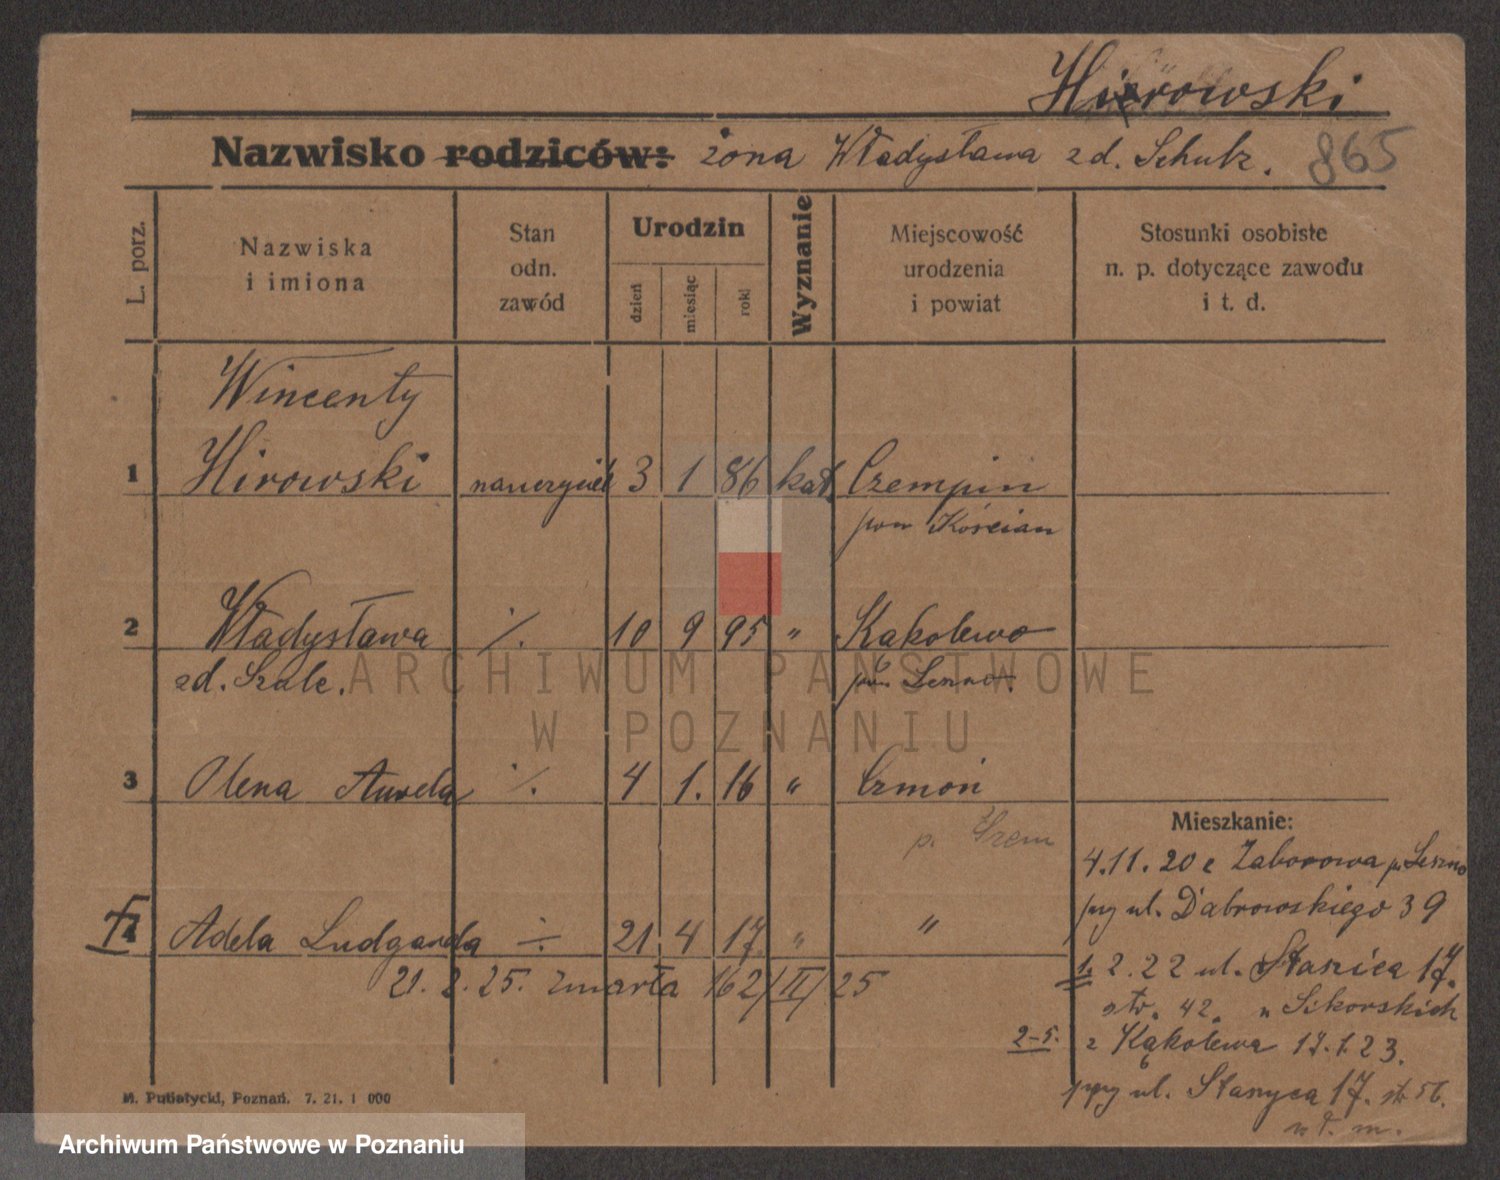 Hirowski
Nazwisko rodziców: żona Władysława zd. Schulz. 865
L. porz.
Nazwiska
i imiona
Stan
odn.
zawód
Urodzin
dzień
miesiąc
rok
Wyznanie
Miejscowość
urodzenia
i powiat
Stosunki osobiste
n. p. dotyczące zawodu
i t. d.
Wincenty
1 Hirowski 3 1 86 kat. Czempiń
pow Kościan
2 Władysława ·/. 10 9 95 " Kąkolewo
zd. Szulc. pow. Leszno.
3 Olena Aurela ·/. 4 1. 16 " Czmoń
p. Szrem
Mieszkanie:
4.11.20 z Zaborowa p. Leszno
przy ul. Dąbrowskiego 39
4 Adela Ludgarda ÷ 21 4 17. " "
21.2.25. zmarła 162/II/25
1. 2.22 ul. Staszica 17.
stw. 42. u Sikorskich
2-5. z Kąkolewa 17.1.23.
przy ul. Staszyca 17. st. 56.
M. Putiatycki, Poznań. 7. 21. 1 000
ARCHIWUM PAŃSTWOWE
W POZNANIU
Archiwum Państwowe w Poznaniu